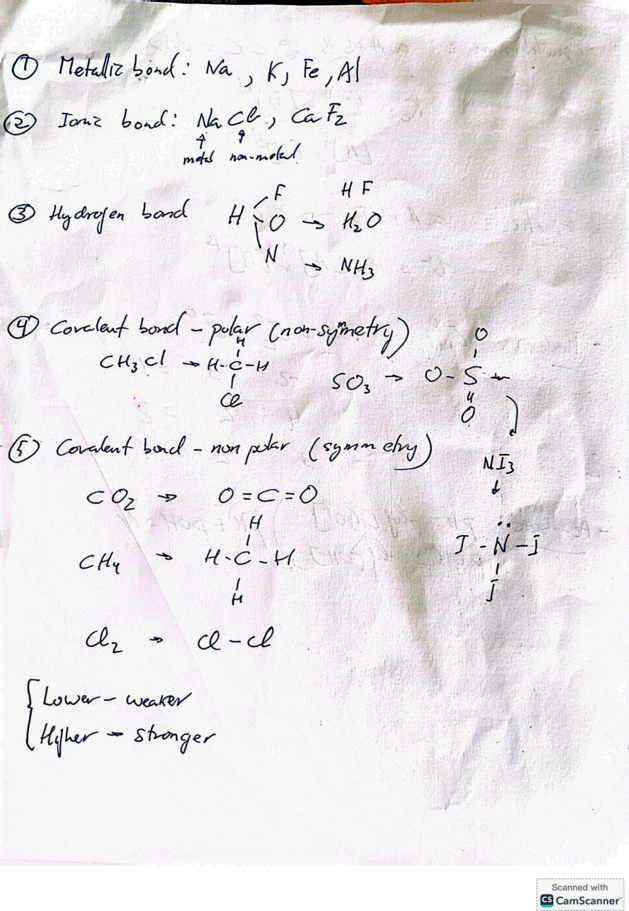 ① Metallic bond: Na, K, Fe, Al
② Ionic bond: NaCl, CaF2
metal non-metal
F HF
③ Hydrogen bond H O → H2O
N → NH3
④ Covalent bond - polar (non-symetry)
O
H
CH3Cl → H-C-H
Cl
SO3 → O-S
O
⑤ Covalent bond - non polar (symmetry)
NI3
CO2 → O=C=O
H
CH4 → H-C-H
H
I-N-I
I
Cl2 → Cl-Cl
Lower - weaker
Higher - stronger
Scanned with
CS CamScanner